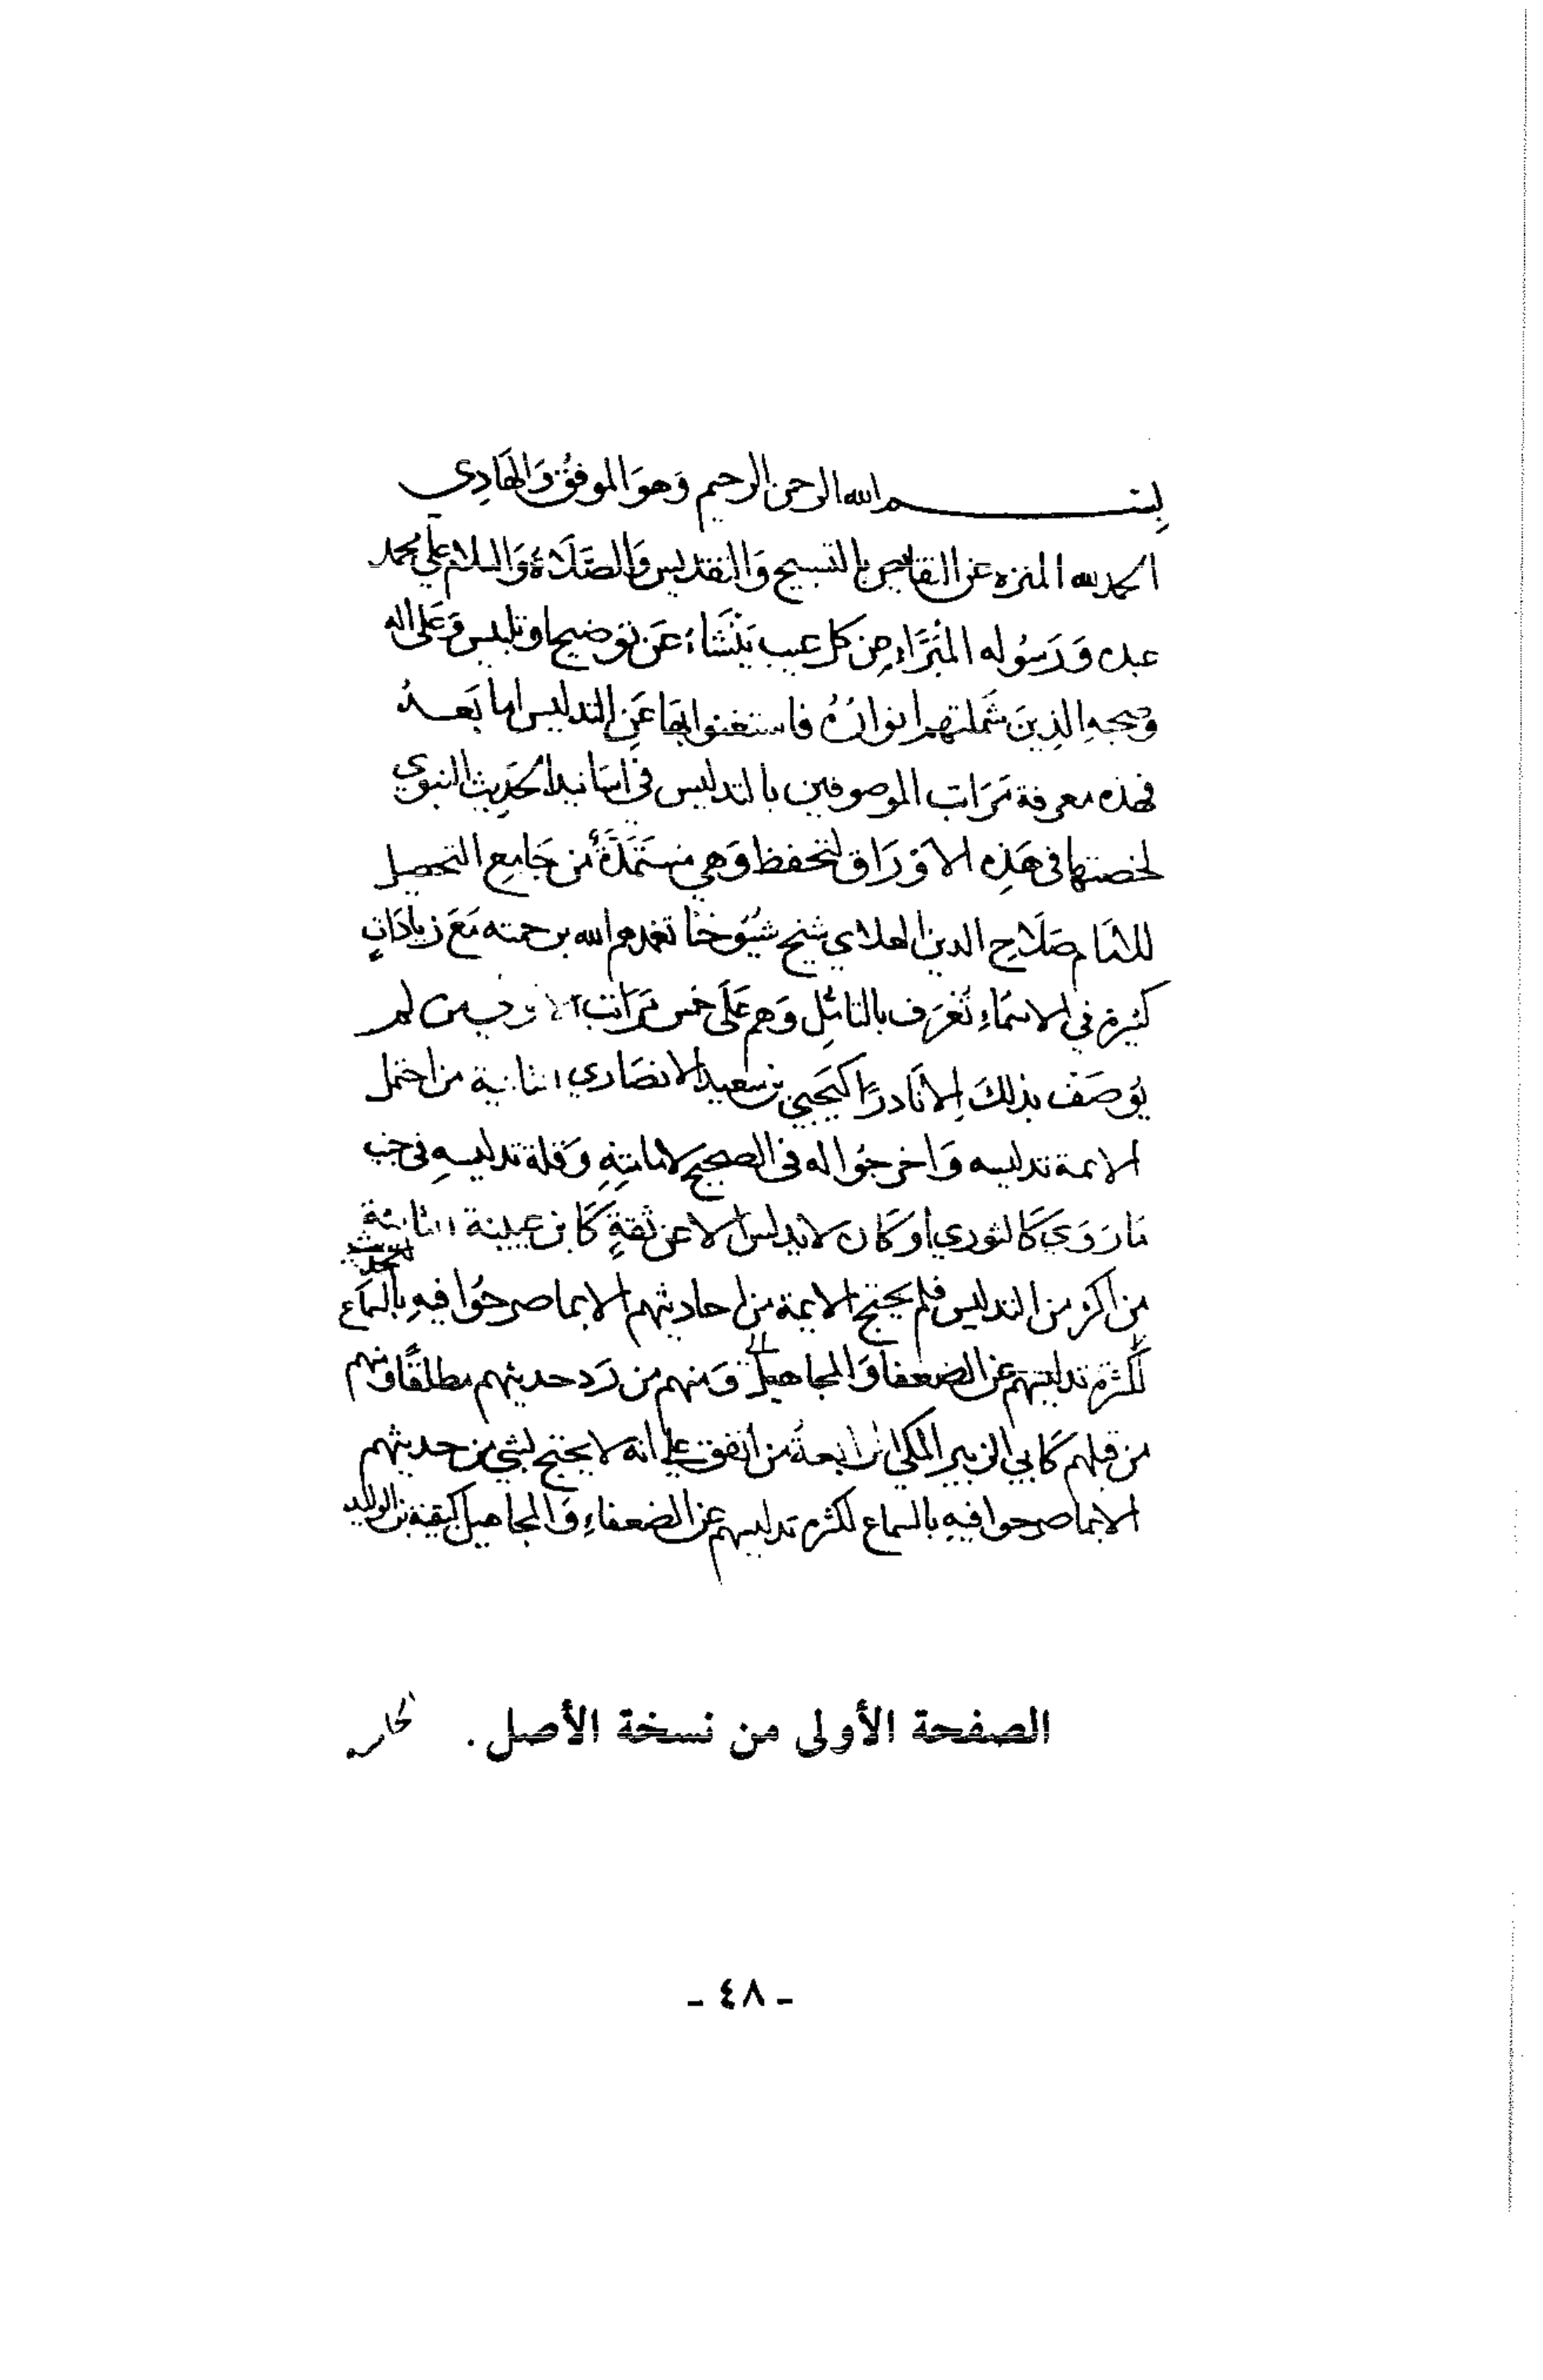 بسم الله الرحمن الرحيم وَهوَ الموفقُ وَالهَادِي
الحمد لله المنزه عن النقايص بالتسبيح وَالتقديس وَالصَّلَاةُ وَالسلام علي محمد
عبده وَرَسُوله المُبَرَّاءِ مِن كل عيب يَنْشَاءُ عَن توضيح او تلبيس وَعَلى اله
وصحبهِ الذِينَ شَملتهم انوارُهُ فاستغنوا بهَا عَنِ التدليس اما بَعــدُ
فهذه معرفة مَرَاتب الموصوفين بالتدليس في اسَانيد الحَدِيث النبوي
لخصتها في هَذِه الاوْرَاق لتحفظ وَهي مستَمَدَّةٌ من جَامِع التحصيل
للامَام صَلَاح الدين العلاي شيخ شيُوخنَا تغمدهم الله برحمته مَعَ زيادَاتٍ
كثيرة في الاسمَاءِ تُعْرَف بالتامُلِ وَهم عَلَى خمس مَرَاتب الاولي من لم
يُوصَف بذلكَ اِلا نَادرًا كيَحيي بن سَعيد الانصَاري الثانية من احتمل
الايمة تدليسه وَاخرجُوا له في الصحيح لامامَتِهِ وَقلة تدليسهِ في جنب
مَا رَوَيَ كَالثوري او كَان لا يدلس الا عن ثقةٍ كَابن عيينة الثالثة
من اكثر من التدليس فلم يحتج الايمة من احاديثهم الا بما صرحُوا فيهِ بالسمَاع
لكثرة تدليسهم عن الضعفا وَالمجاهيل وَمنهم من رَد حديثهم مطلقًا ومنهم
من قبلهم كَابي الزبير المكي الرابعةُ من اتفق علي انه لا يحتج بشي من حديثهم
الا بما صرحوا فيهِ بالسماع لكثرة تدليسهم عن الضعفاءِ وَالمجاهيل كبقية بن الوليد
الصفحة الأولى من نسخة الأصل .
- ٤٨ -